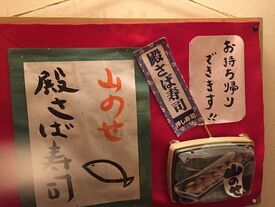 山のせ
殿さば寿司
殿さば寿司
押し寿司
お持ち帰り
できます!!
山のせ